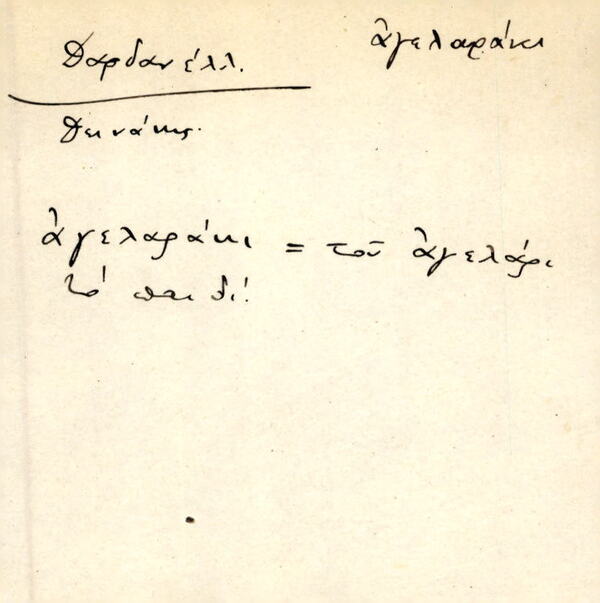 Δαρδανέλλ.
ἀγελαράκι
Δεινάκης.
ἀγελαράκι = τοῦ ἀγελάρι
τὸ παιδί!